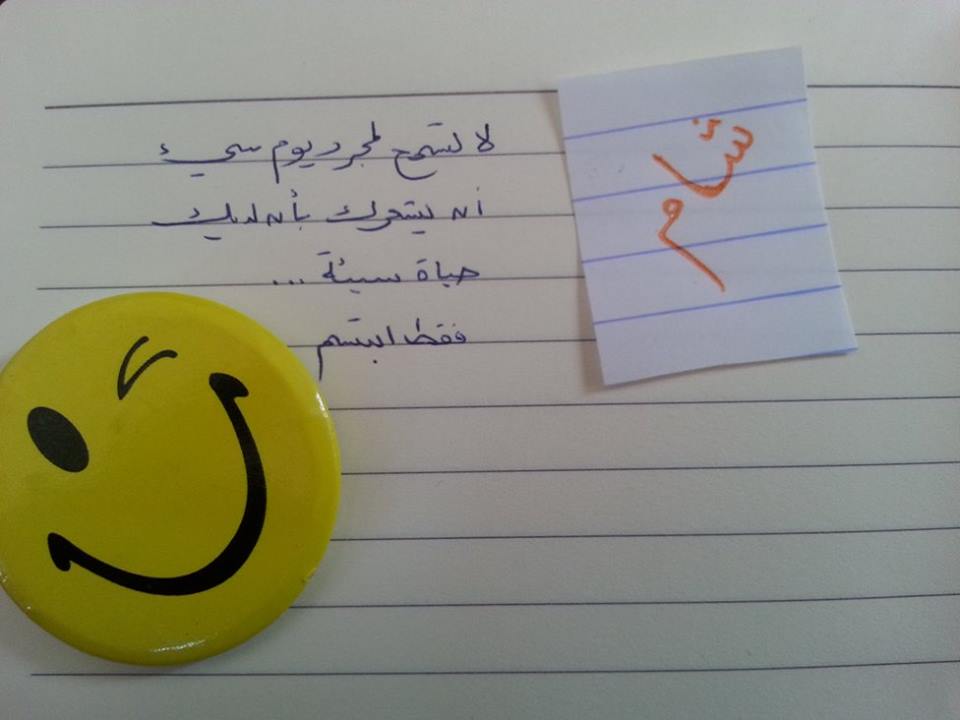 لا تسمح لمجرد يوم سيء
أن يشعرك بأن لديك
حياة سيئة ...
فقط ابتسم
شام